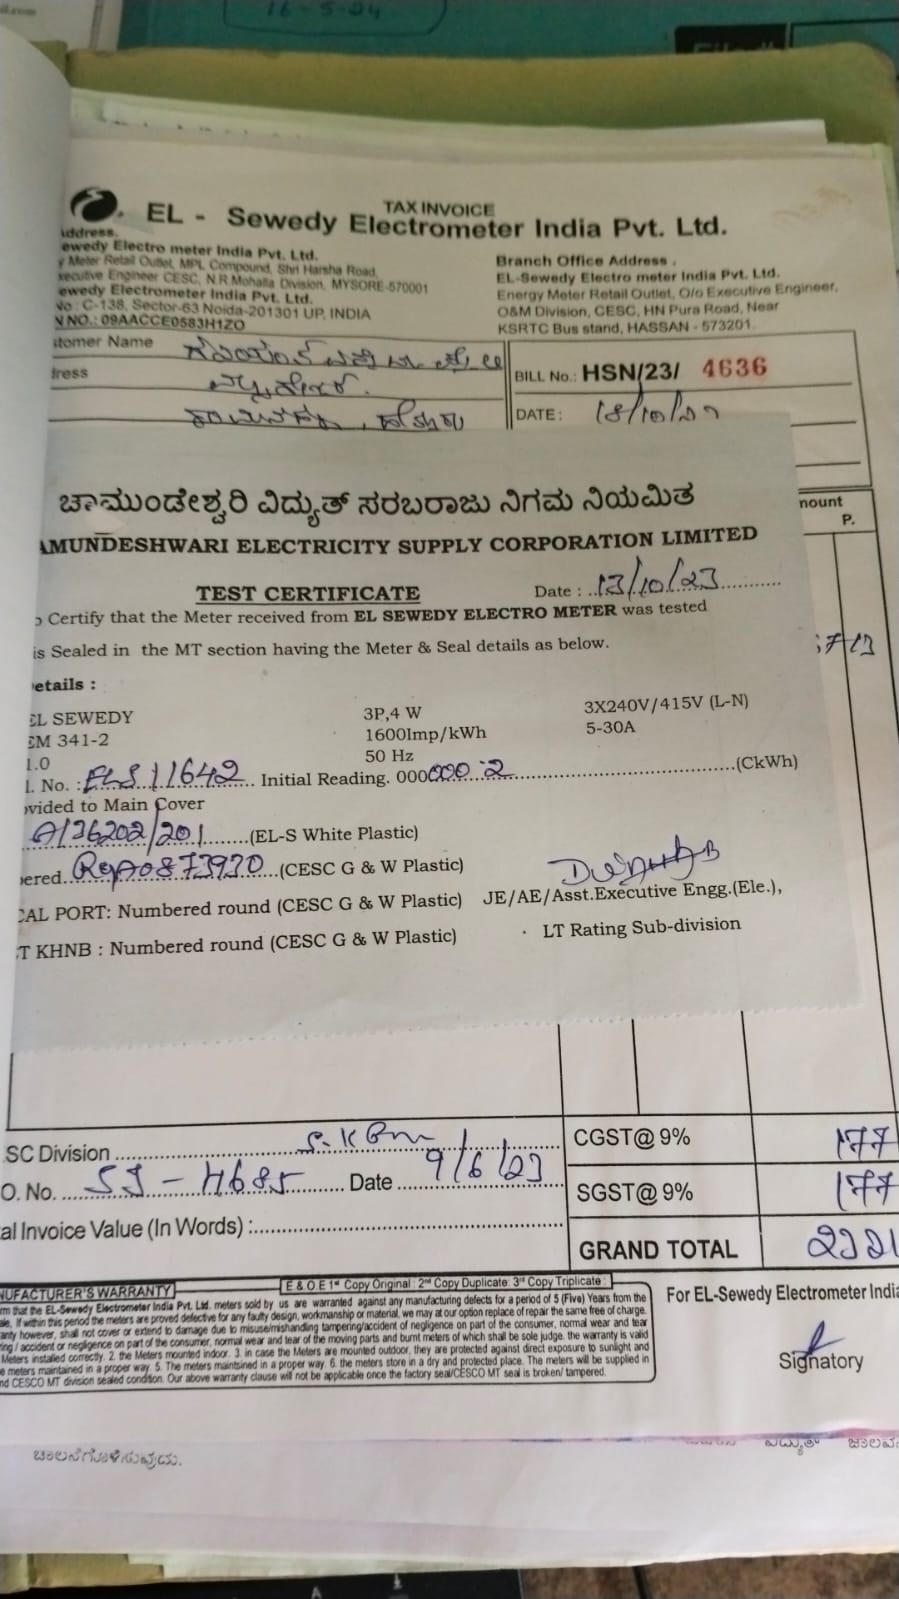 16-5-24
TAX INVOICE
EL - Sewedy Electrometer India Pvt. Ltd.
ddress.
ewedy Electro meter India Pvt. Ltd.
y Meter Retail Outlet, MPL Compound, Shri Harsha Road,
xecutive Engineer CESC, N.R.Mohalla Division, MYSORE-570001
ewedy Electrometer India Pvt. Ltd.
No : C-138, Sector-63 Noida-201301 UP, INDIA
N NO.: 09AACCE0583H1ZO
Branch Office Address .
EL-Sewedy Electro meter India Pvt. Ltd.
Energy Meter Retail Outlet, O/o Executive Engineer,
O&M Division, CESC, HN Pura Road, Near
KSRTC Bus stand, HASSAN - 573201.
stomer Name
dress
BILL No.: HSN/23/ 4636
DATE: 18/10/23
ಚಾಮುಂಡೇಶ್ವರಿ ವಿದ್ಯುತ್ ಸರಬರಾಜು ನಿಗಮ ನಿಯಮಿತ
AMUNDESHWARI ELECTRICITY SUPPLY CORPORATION LIMITED
mount
P.
TEST CERTIFICATE Date : ..13/10/23...........
o Certify that the Meter received from EL SEWEDY ELECTRO METER was tested
is Sealed in the MT section having the Meter & Seal details as below.
etails :
EL SEWEDY 3P,4 W 3X240V/415V (L-N)
EM 341-2 1600Imp/kWh 5-30A
1.0 50 Hz
l. No. :ELS11642... Initial Reading. 000000.2...............(CkWh)
ovided to Main Cover
A/26202/201......(EL-S White Plastic)
ered. (CESC G & W Plastic)
CAL PORT: Numbered round (CESC G & W Plastic) JE/AE/Asst.Executive Engg.(Ele.),
T KHNB : Numbered round (CESC G & W Plastic) LT Rating Sub-division
SC Division
CGST@ 9% 177
O. No. SJ - 4685 Date 9/6/23
SGST@ 9% 177
al Invoice Value (In Words) :
GRAND TOTAL 2321
E & O E 1st Copy Original : 2nd Copy Duplicate: 3rd Copy Triplicate :
NUFACTURER'S WARRANTY
rm that the EL-Sewedy Electrometer India Pvt. Ltd. meters sold by us are warranted against any manufacturing defects for a period of 5 (Five) Years from the
ale. If within this period the meters are proved defective for any faulty design, workmanship or material, we may at our option replace of repair the same free of charge.
anty however, shall not cover or extend to damage due to misuse/mishandling tampering/accident of negligence on part of the consumer, normal wear and tear
ring / accident or negligence on part of the consumer, normal wear and tear of the moving parts and burnt meters of which shall be sole judge. the warranty is valid
Meters installed correctly. 2. the Meters mounted indoor. 3. in case the Meters are mounted outdoor, they are protected against direct exposure to sunlight and
e meters maintained in a proper way. 5. The meters maintained in a proper way. 6. the meters store in a dry and protected place. The meters will be supplied in
nd CESCO MT division sealed condition. Our above warranty clause will not be applicable once the factory seal/CESCO MT seal is broken/ tampered.
For EL-Sewedy Electrometer India
Signatory
ಚಾಲನೆಗೊಳಿಸುವುದು.